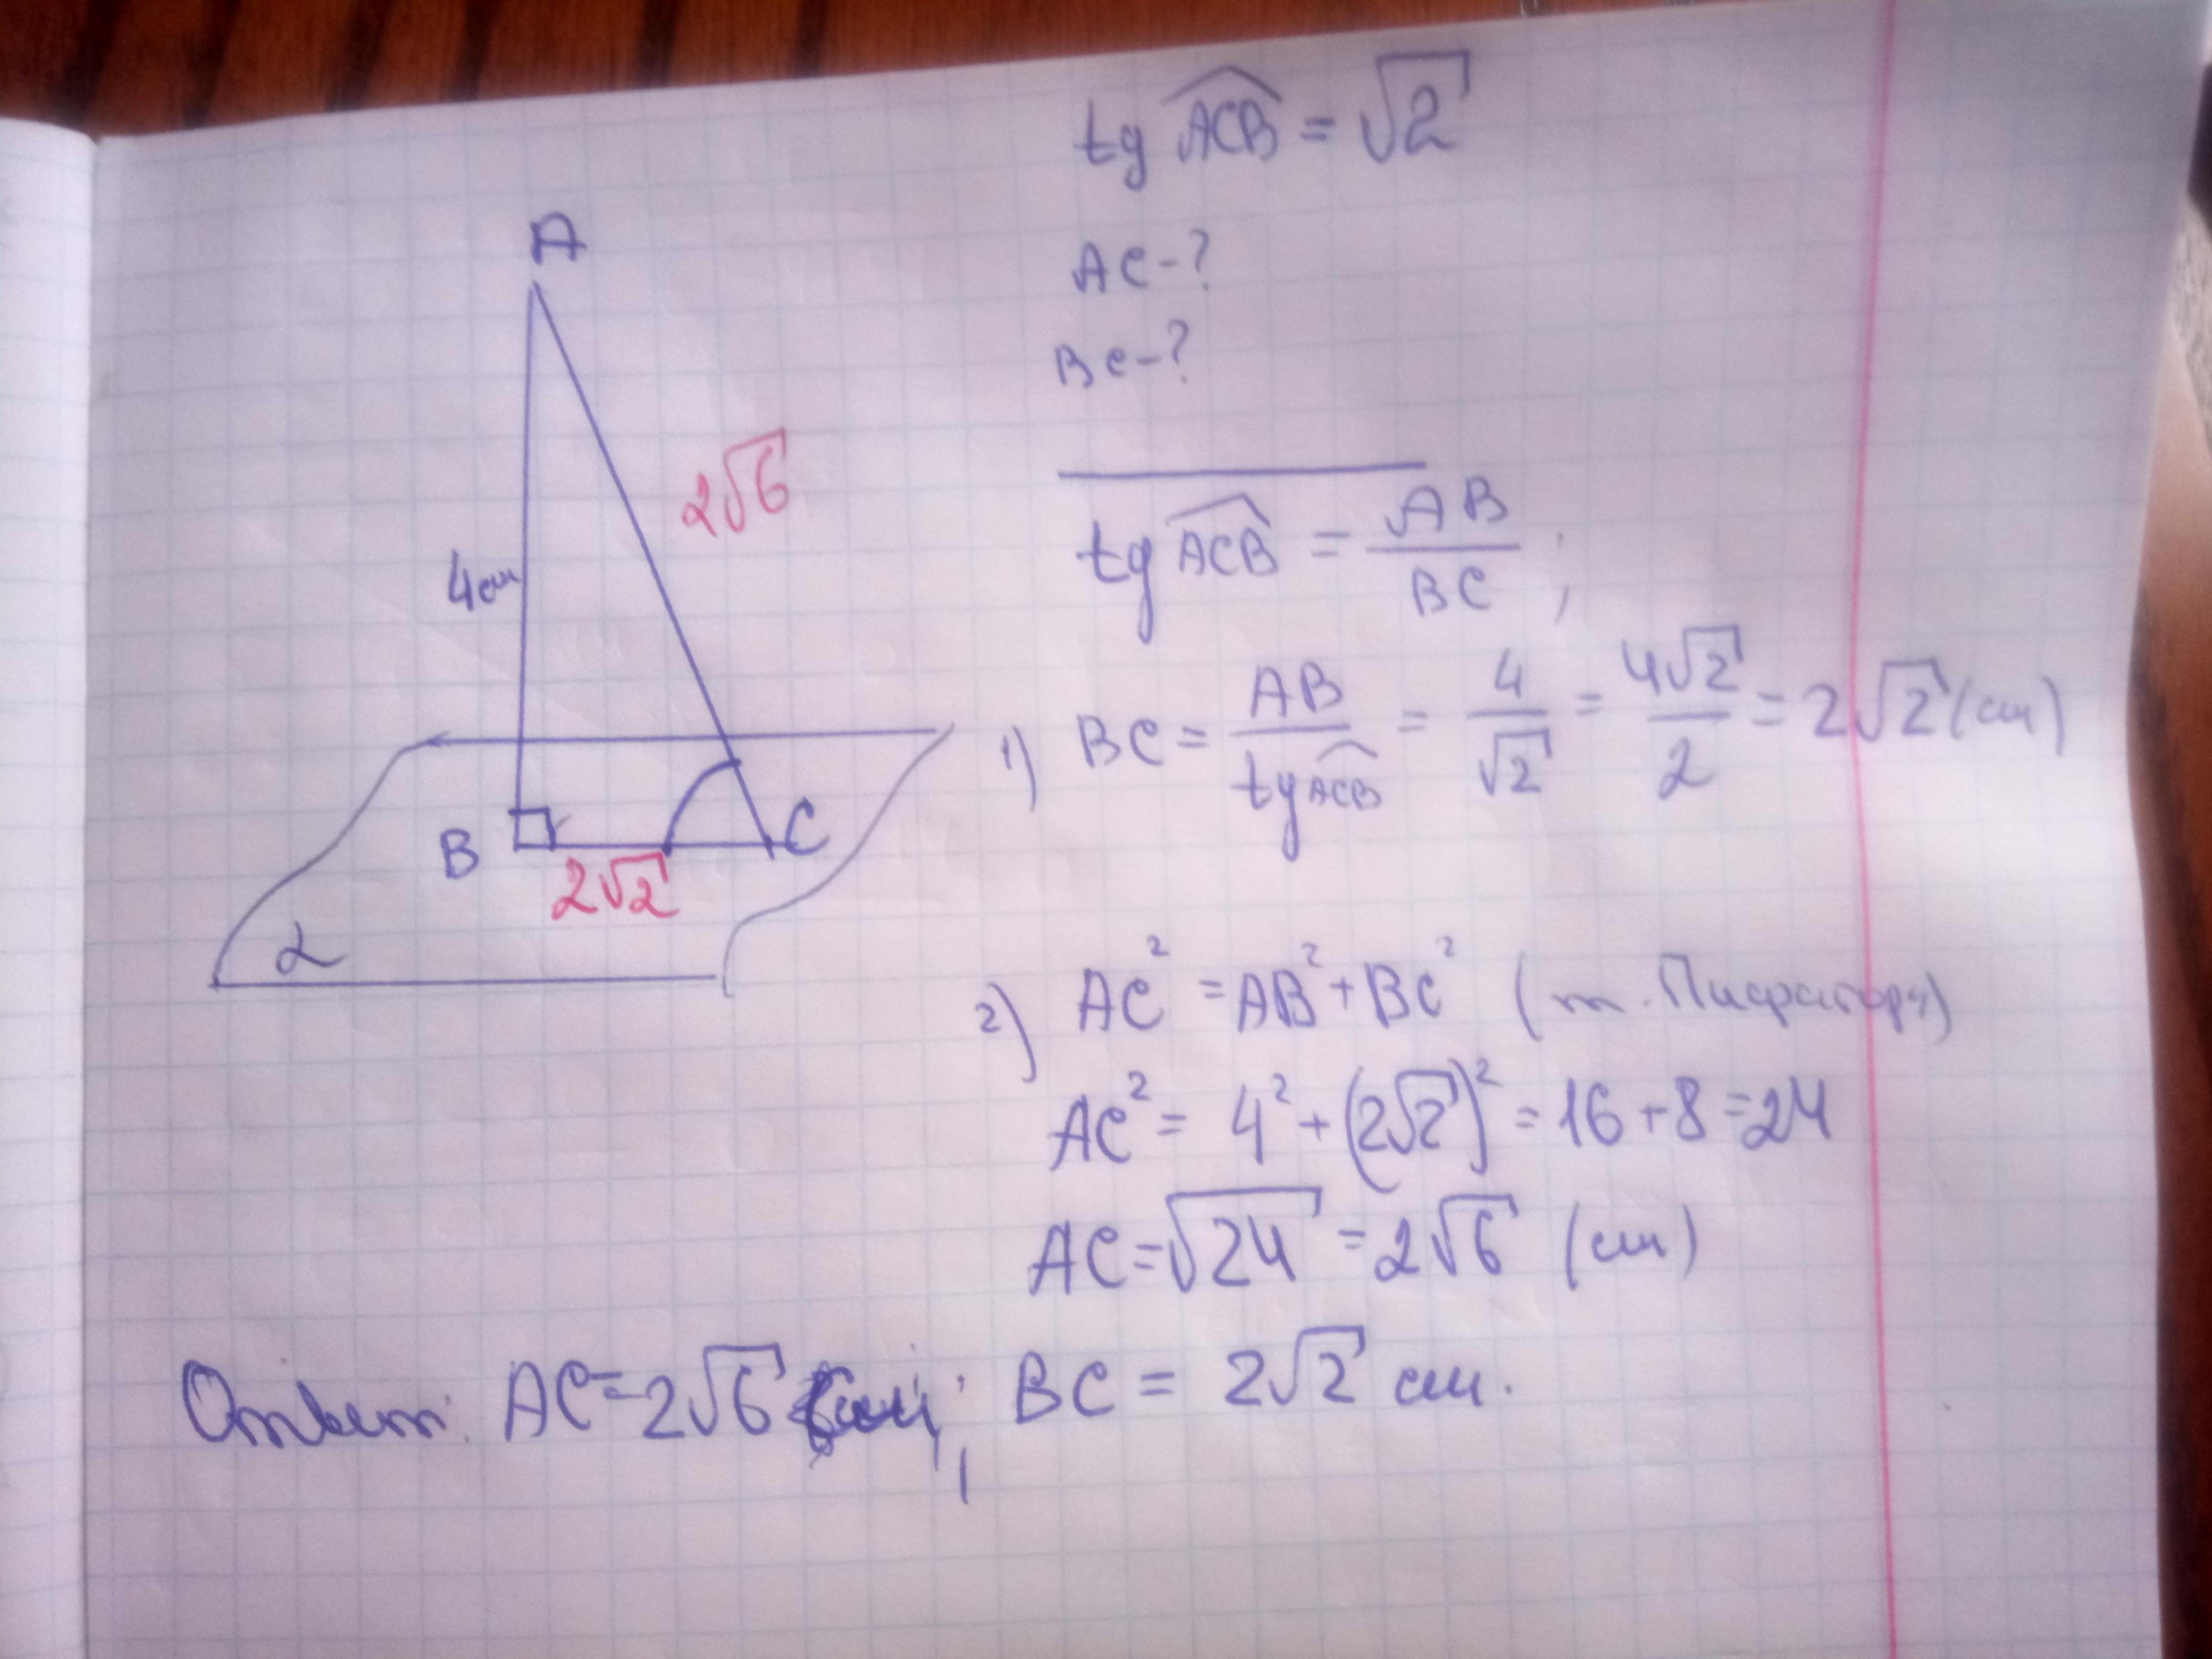 tg ACB = √2
A
AC-?
BC-?
2√6
4см
tg ACB = AB/BC ;
1) BC = AB/tg ACB = 4/√2 = 4√2/2 = 2√2 (см)
B
C
2√2
α
2) AC² = AB² + BC² (т. Пифагора)
AC² = 4² + (2√2)² = 16 + 8 = 24
AC = √24 = 2√6 (см)
Ответ: AC = 2√6 см; BC = 2√2 см.